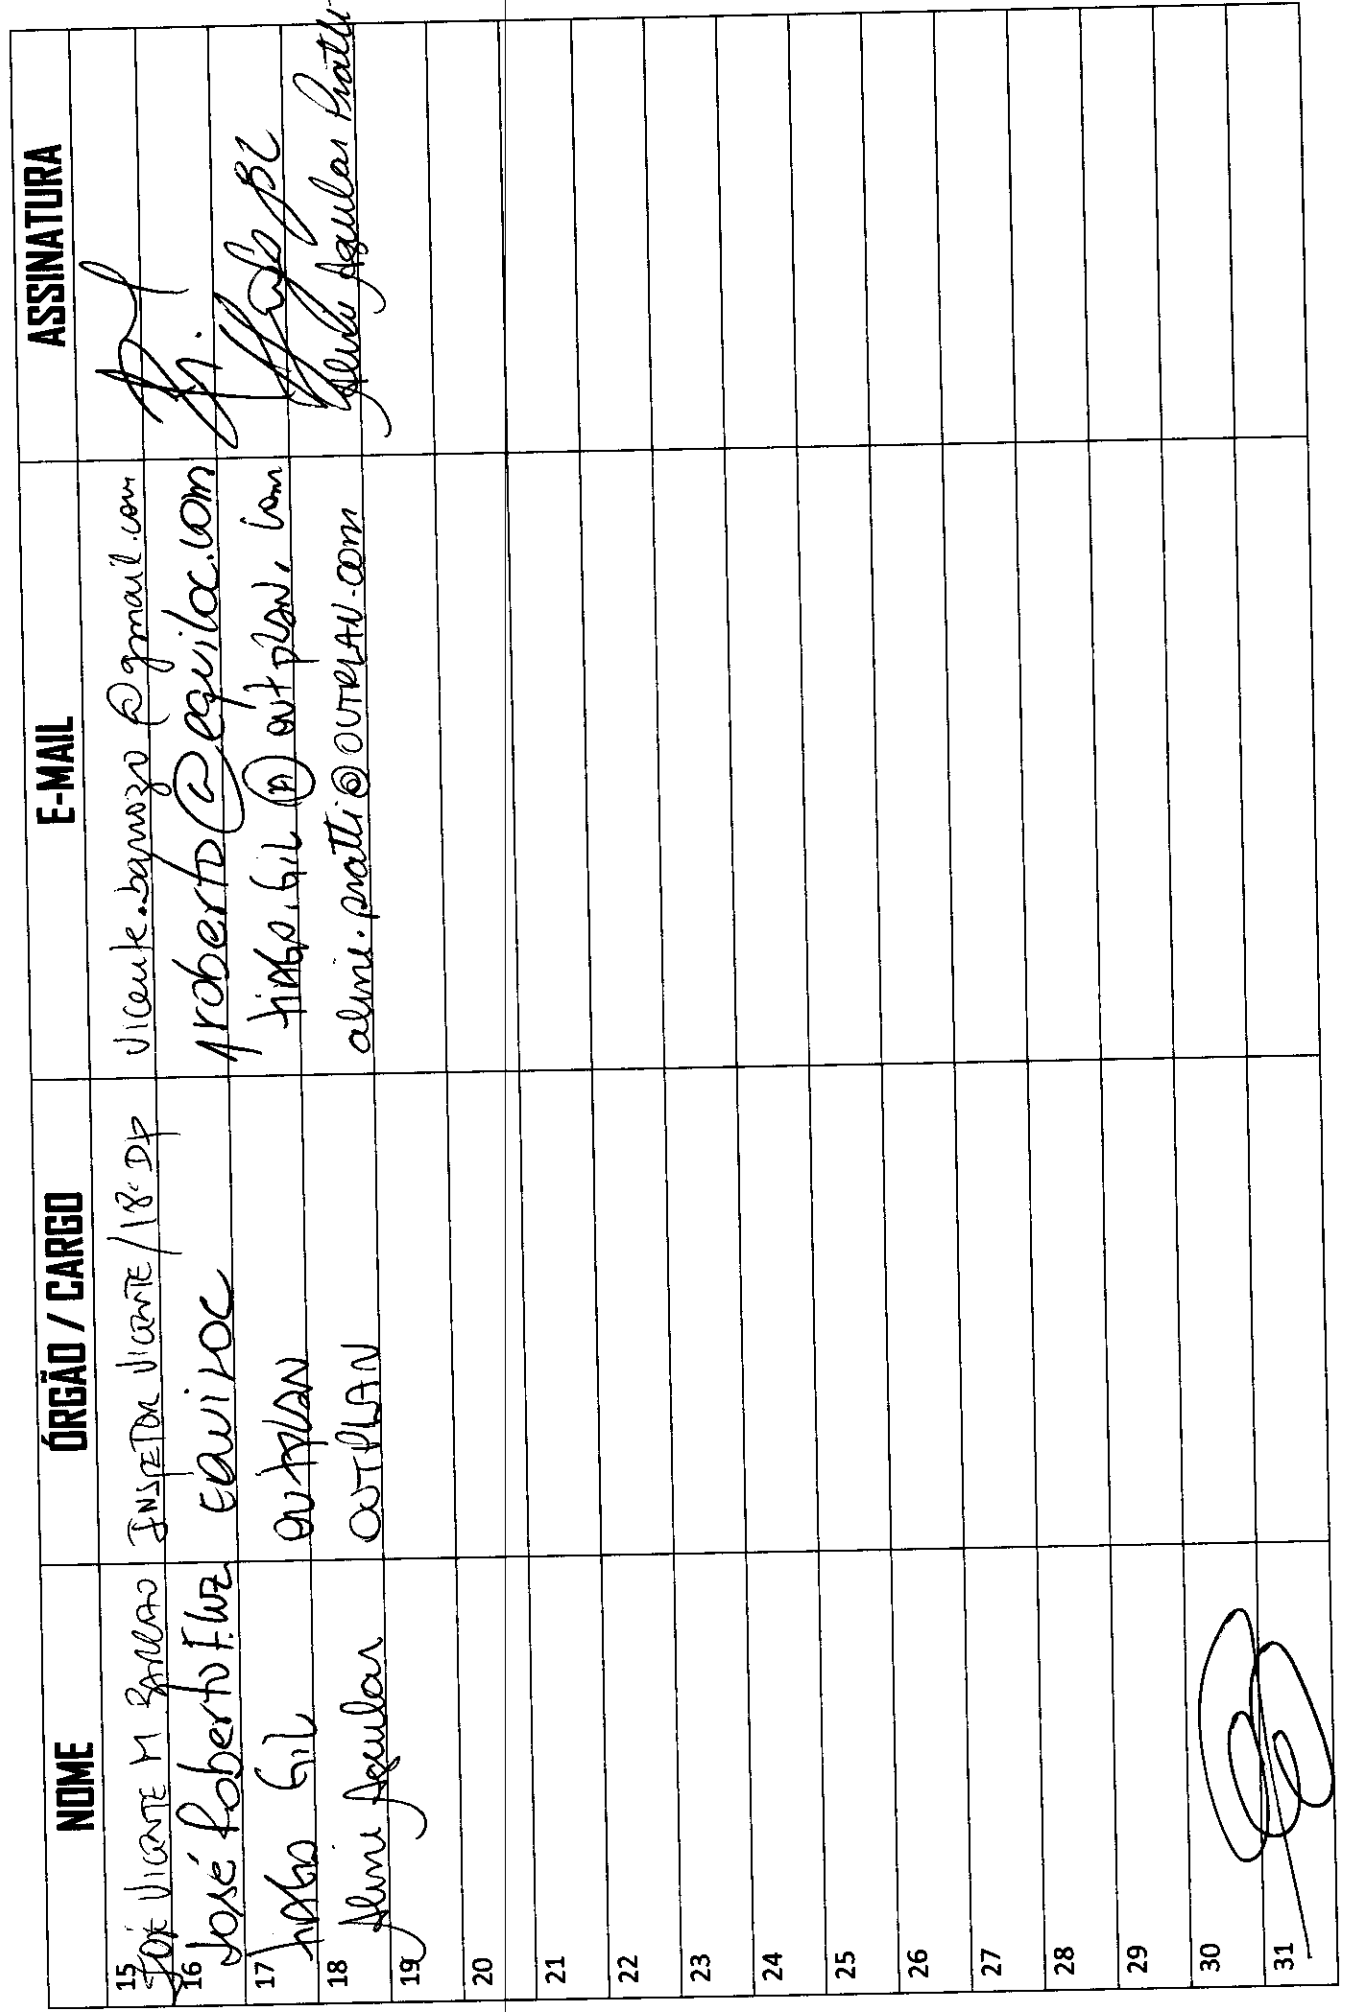 NOME ÓRGÃO / CARGO E-MAIL ASSINATURA
15 José Vicente M INSPETOR VICENTE/18ª DP vicente.barrozo@gmail.com
16 José Roberto F. Luz EQUILOC jroberto@equiloc.com
17 tiago Gil outplan tiago.Gil@outplan.com
18 Aline Aguilar OUTPLAN aline.pratti@OUTPLAN.com Aline Aguilar Pratti
19
20
21
22
23
24
25
26
27
28
29
30
31